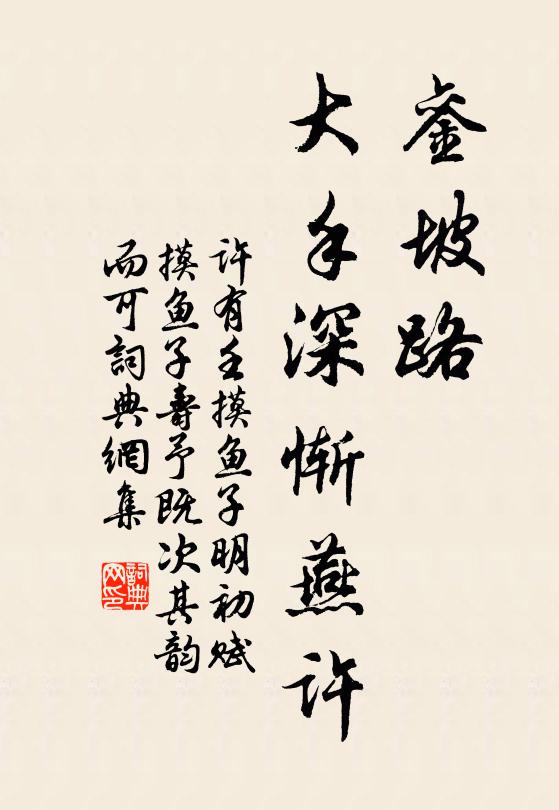 銮坡路
大手深惭燕许
许有壬摸鱼子明初赋
摸鱼子寿予既次其韵
而可词典网集
词典网印